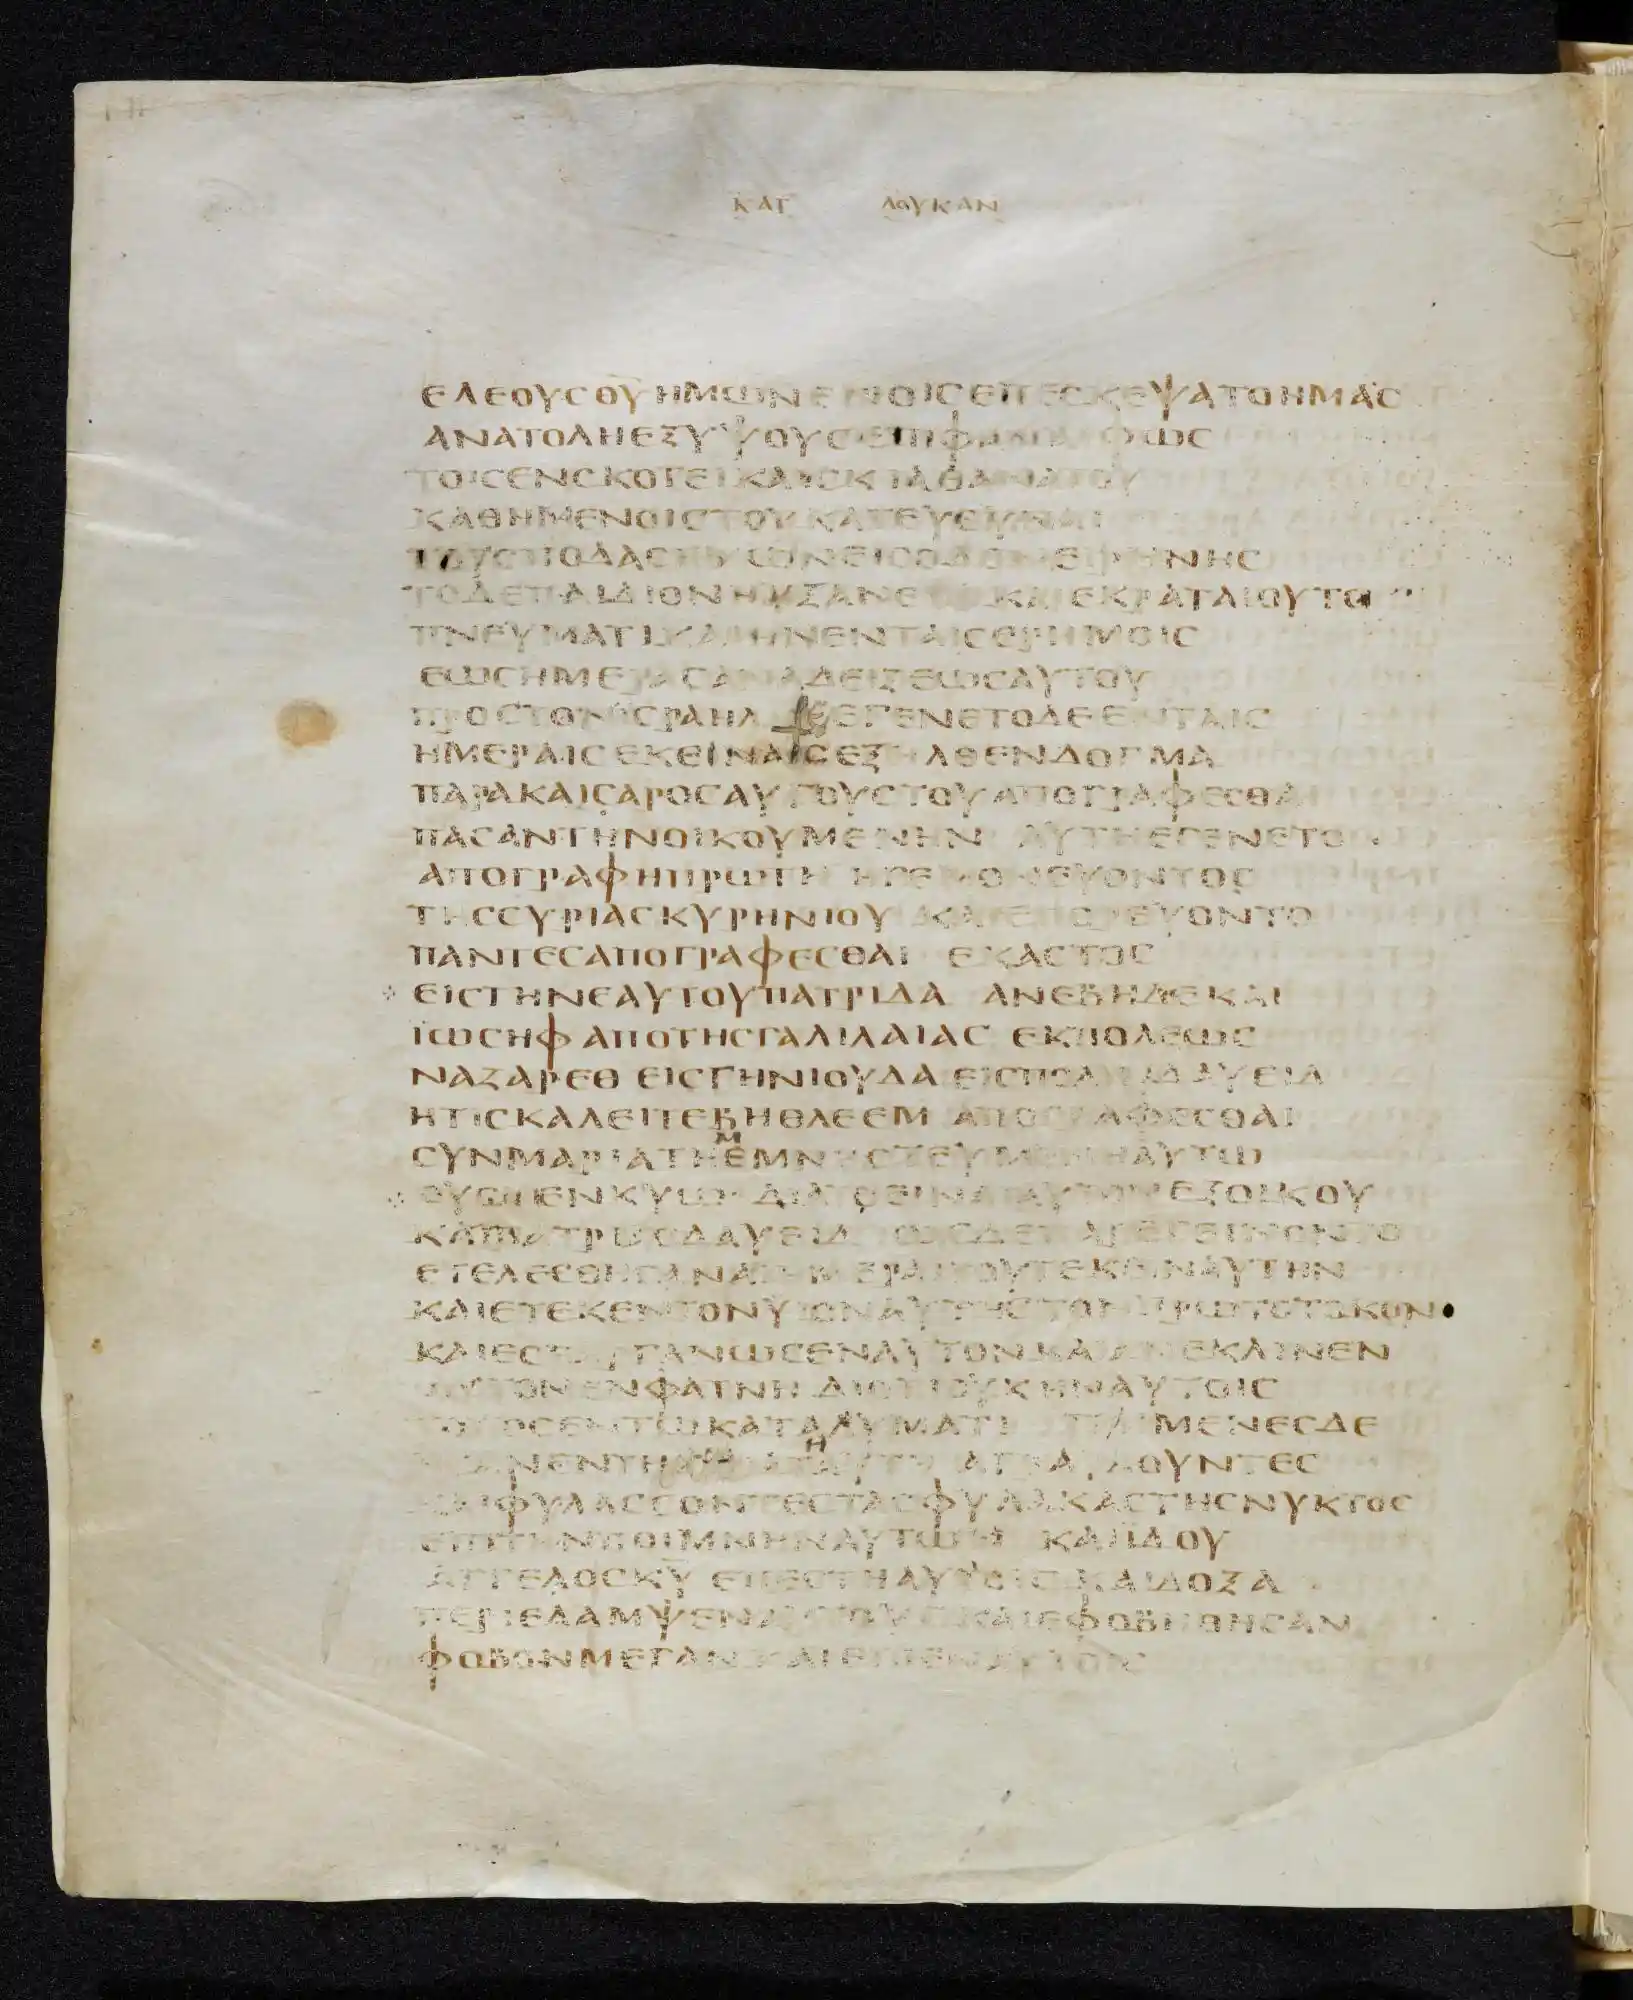 ΚΑΤ ΛΟΥΚΑΝ
ΕΛΕΟΥΣ ΘΥ ΗΜΩΝ ΕΝ ΟΙΣ ΕΠΕΣΚΕΨΑΤΟ ΗΜΑΣ
ΑΝΑΤΟΛΗ ΕΞ ΥΨΟΥΣ ΦΩΣ
ΤΟΙΣ ΕΝ ΣΚΟΤΕΙ ΚΑΙ ΣΚΙΑ ΘΑΝΑΤΟΥ
ΚΑΘΗΜΕΝΟΙΣ ΤΟΥ
ΤΟΥΣ ΠΟΔΑΣ ΕΙΣ ΟΔΟΝ ΕΙΡΗΝΗΣ
ΤΟ ΔΕ ΠΑΙΔΙΟΝ ΗΥΞΑΝΕ ΚΑΙ ΕΚΡΑΤΑΙΟΥΤΟ
ΠΝΕΥΜΑΤΙ ΚΑΙ ΗΝ ΕΝ ΤΑΙΣ ΕΡΗΜΟΙΣ
ΕΩΣ ΗΜΕΡΑΣ ΑΝΑΔΕΙΞΕΩΣ ΑΥΤΟΥ
ΠΡΟΣ ΤΟΝ ΙΣΡΑΗΛ ΕΓΕΝΕΤΟ ΔΕ ΕΝ ΤΑΙΣ
ΗΜΕΡΑΙΣ ΕΚΕΙΝΑΙΣ ΕΞΗΛΘΕΝ ΔΟΓΜΑ
ΠΑΡΑ ΚΑΙΣΑΡΟΣ ΑΥΓΟΥΣΤΟΥ ΑΠΟΓΡΑΦΕΣΘΑΙ
ΠΑΣΑΝ ΤΗΝ ΟΙΚΟΥΜΕΝΗΝ ΑΥΤΗ ΕΓΕΝΕΤΟ
ΑΠΟΓΡΑΦΗ ΠΡΩΤΗ ΗΓΕΜΟΝΕΥΟΝΤΟΣ
ΤΗΣ ΣΥΡΙΑΣ ΚΥΡΗΝΙΟΥ ΚΑΙ ΕΠΟΡΕΥΟΝΤΟ
ΠΑΝΤΕΣ ΑΠΟΓΡΑΦΕΣΘΑΙ ΕΚΑΣΤΟΣ
ΕΙΣ ΤΗΝ ΕΑΥΤΟΥ ΠΑΤΡΙΔΑ ΑΝΕΒΗ ΔΕ ΚΑΙ
ΙΩΣΗΦ ΑΠΟ ΤΗΣ ΓΑΛΙΛΑΙΑΣ ΕΚ ΠΟΛΕΩΣ
ΝΑΖΑΡΕΘ ΕΙΣ ΓΗΝ ΙΟΥΔΑ ΕΙΣ ΠΟΛΙΝ ΔΑΥΕΙΔ
ΗΤΙΣ ΚΑΛΕΙΤΕ ΒΗΘΛΕΕΜ ΑΠΟΓΡΑΦΕΣΘΑΙ
ΣΥΝ ΜΑΡΙΑ ΤΗ ΕΜΝΗΣΤΕΥΜΕΝΗ ΑΥΤΩ
ΟΥΣΗ ΕΝΚΥΩ ΔΙΑ ΤΟ ΕΙΝΑΙ ΑΥΤΟΝ ΕΞ ΟΙΚΟΥ
ΚΑΙ ΠΑΤΡΙΑΣ ΔΑΥΕΙΔ ΩΣ ΔΕ ΠΑΡΕΓΕΙΝΟΝΤΟ
ΕΤΕΛΕΣΘΗΣΑΝ ΑΙ ΗΜΕΡΑΙ ΤΟΥ ΤΕΚΕΙΝ ΑΥΤΗΝ
ΚΑΙ ΕΤΕΚΕΝ ΤΟΝ ΥΙΟΝ ΑΥΤΗΣ ΤΟΝ ΠΡΩΤΟΤΟΚΟΝ
ΚΑΙ ΕΣΠΑΡΓΑΝΩΣΕΝ ΑΥΤΟΝ ΚΑΙ ΑΝΕΚΛΙΝΕΝ
ΑΥΤΟΝ ΕΝ ΦΑΤΝΗ ΔΙΟΤΙ ΟΥΚ ΗΝ ΑΥΤΟΙΣ
ΤΟΠΟΣ ΕΝ ΤΩ ΚΑΤΑΛΥΜΑΤΙ ΠΟΙΜΕΝΕΣ ΔΕ
ΗΣΑΝ ΕΝ ΤΗ ΑΓΡΑΥΛΟΥΝΤΕΣ
ΚΑΙ ΦΥΛΑΣΣΟΝΤΕΣ ΤΑΣ ΦΥΛΑΚΑΣ ΤΗΣ ΝΥΚΤΟΣ
ΕΠΙ ΤΗΝ ΠΟΙΜΝΗΝ ΑΥΤΩΝ ΚΑΙ ΙΔΟΥ
ΑΓΓΕΛΟΣ ΚΥ ΕΠΕΣΤΗ ΑΥΤΟΙΣ ΚΑΙ ΔΟΞΑ
ΠΕΡΙΕΛΑΜΨΕΝ ΑΥΤΟΥΣ ΚΑΙ ΕΦΟΒΗΘΗΣΑΝ
ΦΟΒΟΝ ΜΕΓΑΝ ΚΑΙ ΕΙΠΕΝ ΑΥΤΟΙΣ